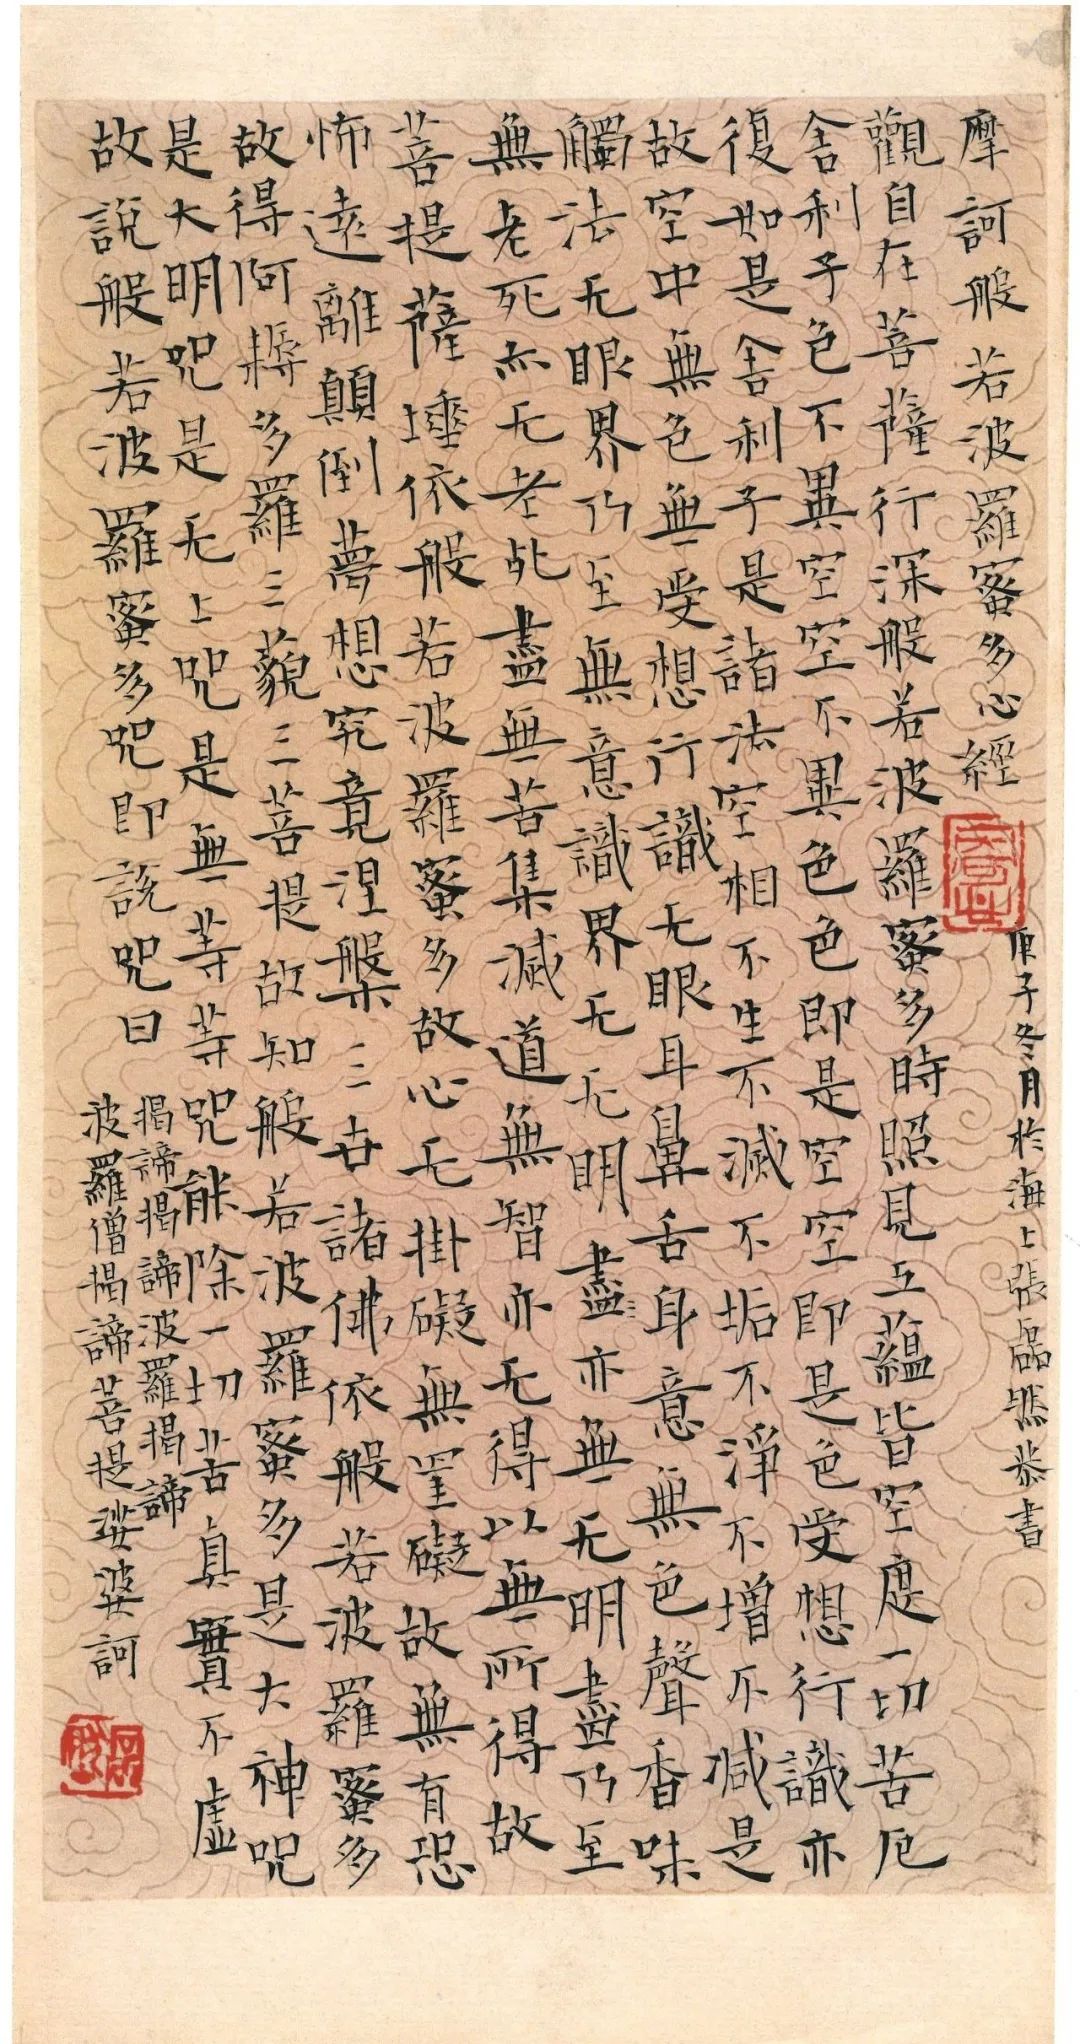 摩訶般若波羅蜜多心經
庚子冬月於海上張磊然恭書
觀自在菩薩行深般若波羅蜜多時照見五蘊皆空度一切苦厄
舍利子色不異空空不異色色即是空空即是色受想行識亦
復如是舍利子是諸法空相不生不滅不垢不淨不增不減是
故空中無色無受想行識无眼耳鼻舌身意無色聲香味
觸法无眼界乃至無意識界无无明盡亦無无明盡乃至
無老死亦无老死盡無苦集滅道無智亦无得以無所得故
菩提薩埵依般若波羅蜜多故心无掛礙無罣礙故無有恐
怖遠離顛倒夢想究竟涅槃三世諸佛依般若波羅蜜多
故得阿耨多羅三藐三菩提故知般若波羅蜜多是大神咒
是大明咒是无上咒是無等等咒能除一切苦真實不虛
故說般若波羅蜜多咒即說咒曰
揭諦揭諦波羅揭諦
波羅僧揭諦菩提娑婆訶